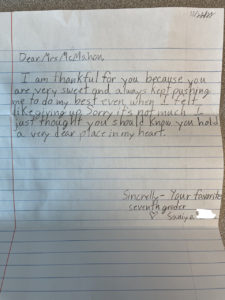 Dear Mrs McMahon,
I am thankful for you because you
are very sweet and always kept pushing
me to do my best even when I felt
like giving up. Sorry it's not much I
just thought you should know you hold
a very dear place in my heart.
Sincrelly - Your favorite
seventh grader
Saniya